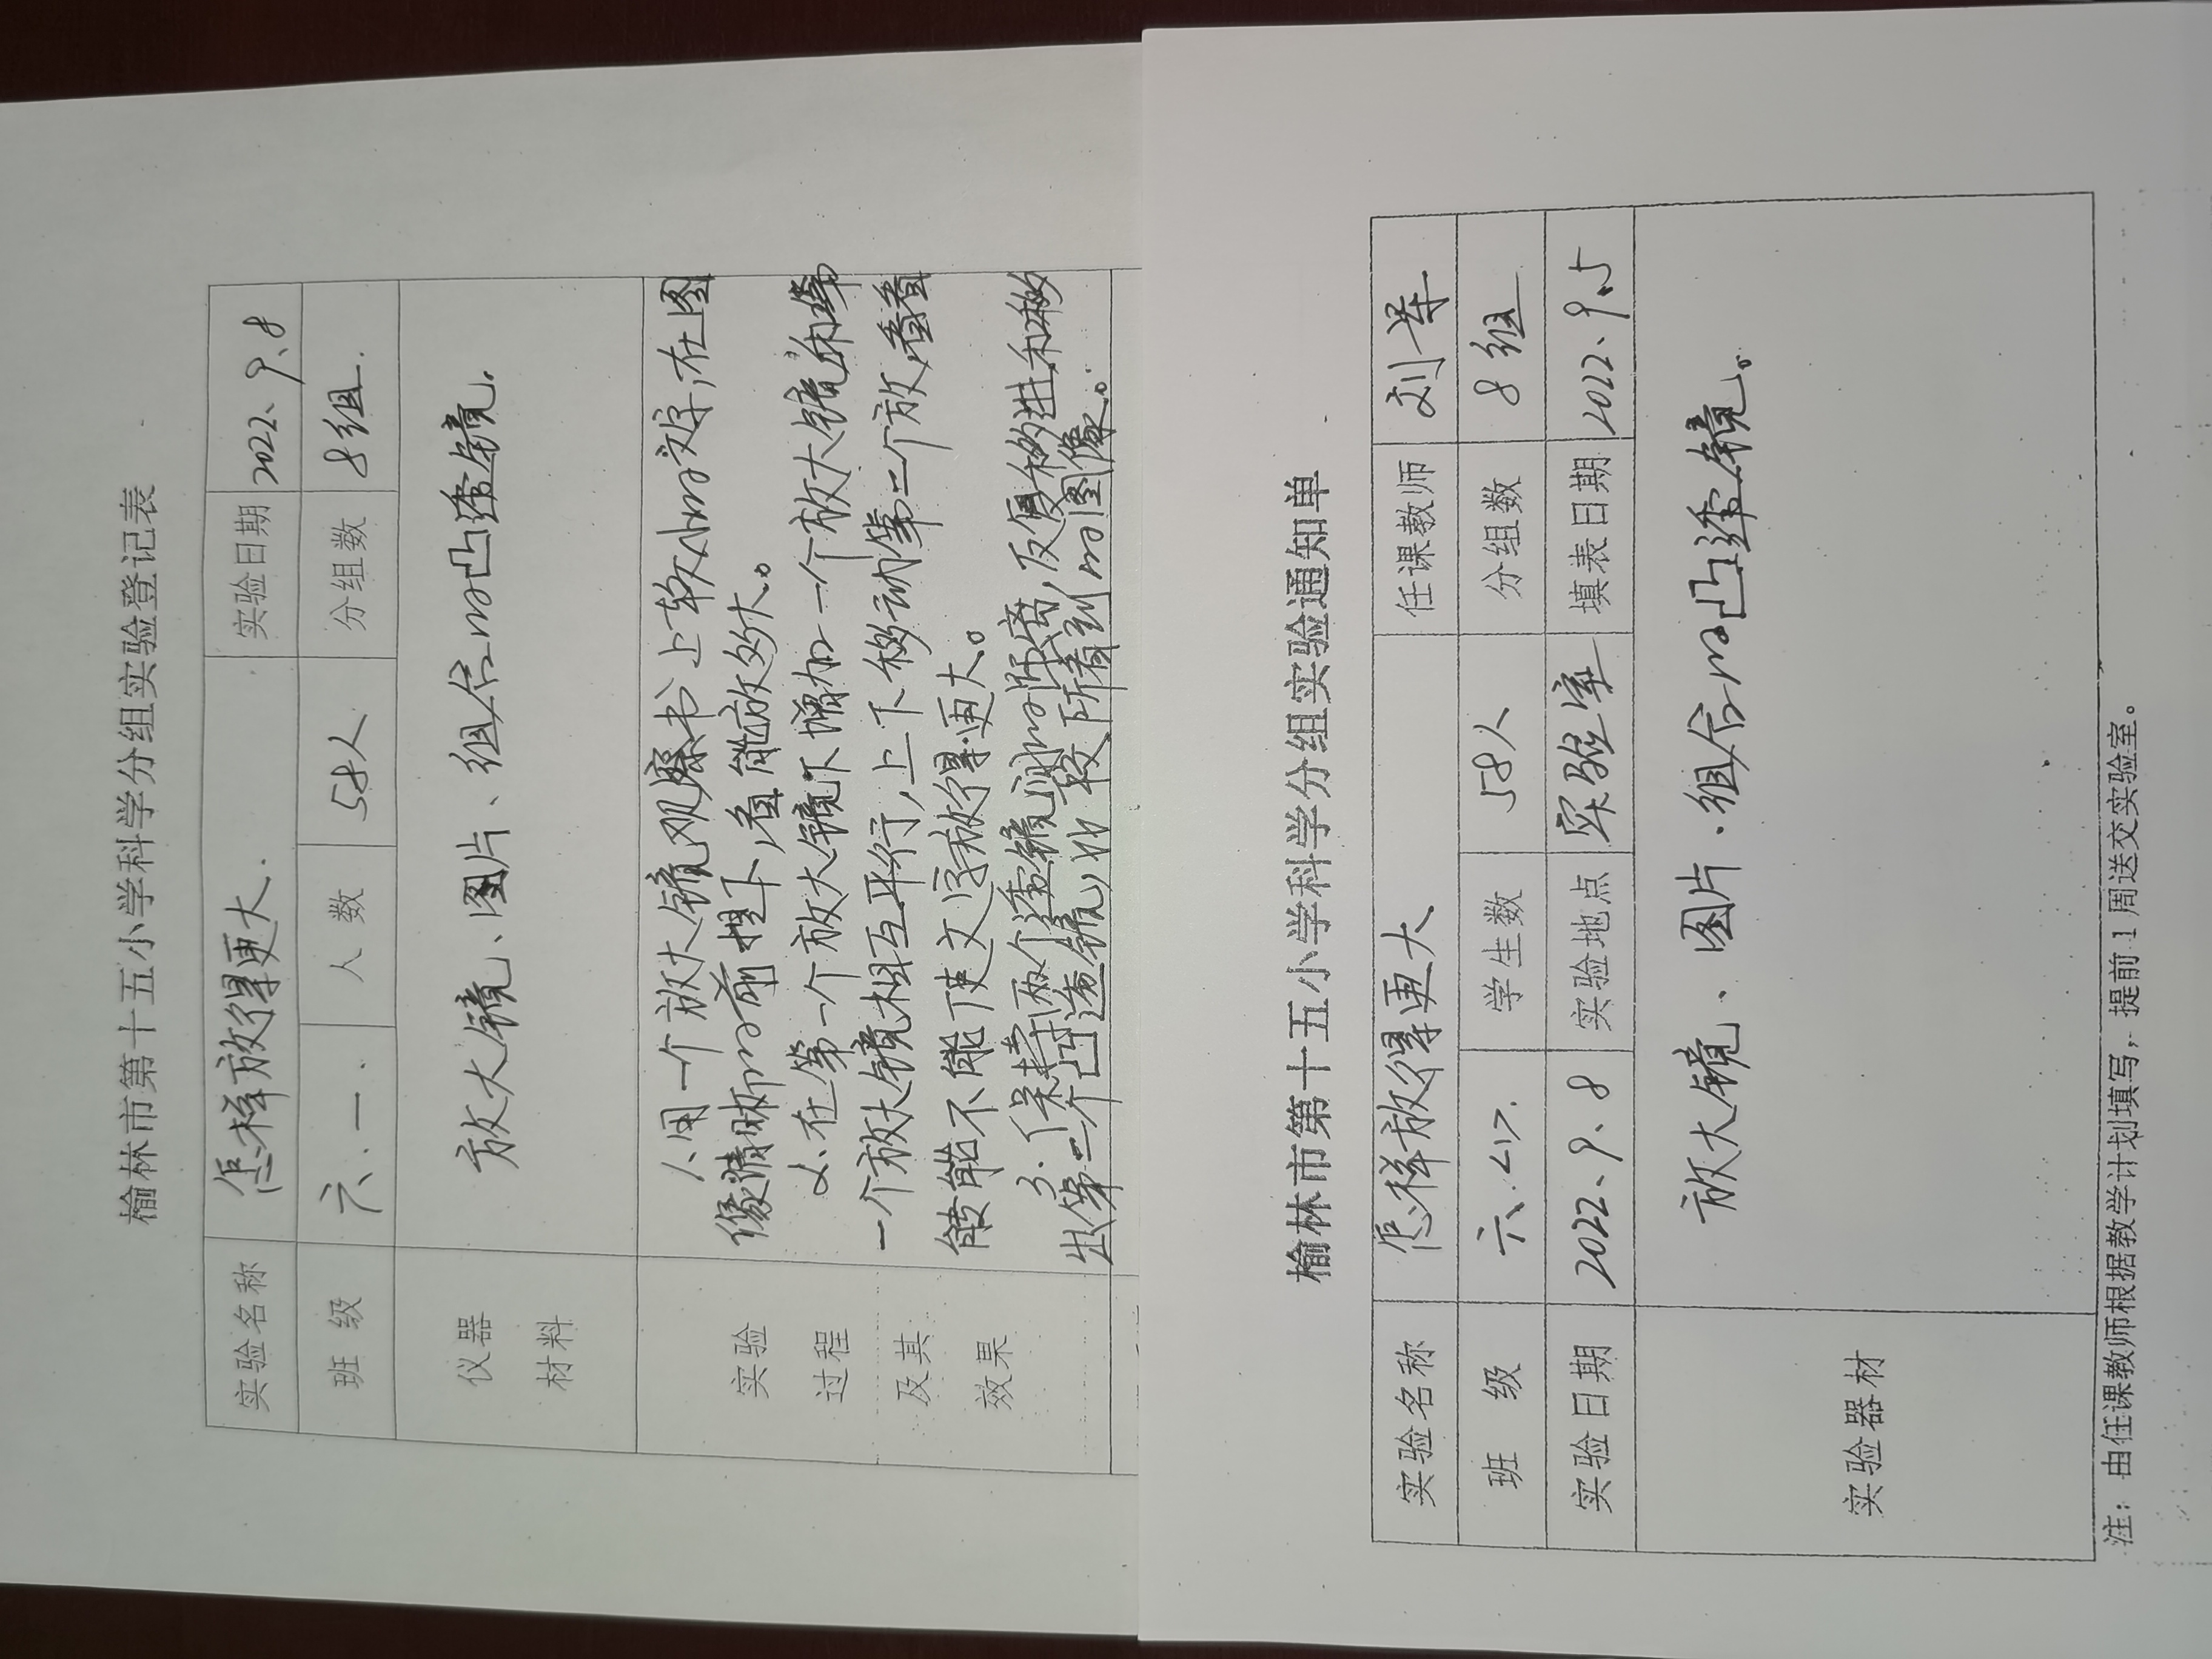 榆林市第十五小学科学分组实验登记表
实验名称 怎样放得更大. 实验日期 2022、9、8
班 级 六、一. 人 数 58人 分组数 8组.
仪器 材料 放大镜、图片、组合的凸透镜.
实验 过程 及其 效果
1、用一个放大镜观察书上较小的文字,在图
像清晰的前提下,看能放多大。
2、在第一个放大镜下增加一个放大镜,和第
一个放大镜相互平行,上下移动第二个放,看看
能不能使文字放得更大。
3.保持两个透镜间的距离,反复移进和移
出第二个凸透镜,比较下所看到的图像。
榆林市第十五小学科学分组实验通知单
实验名称 怎样放得更大 任课教师 刘
班 级 六、<1>. 学生数 58人 分组数 8组
实验日期 2022、9、8 实验地点 实验室 填表日期 2022、9、5
实验器材 放大镜、图片.组合的凸透镜。
注：由任课教师根据教学计划填写，提前1周送交实验室。